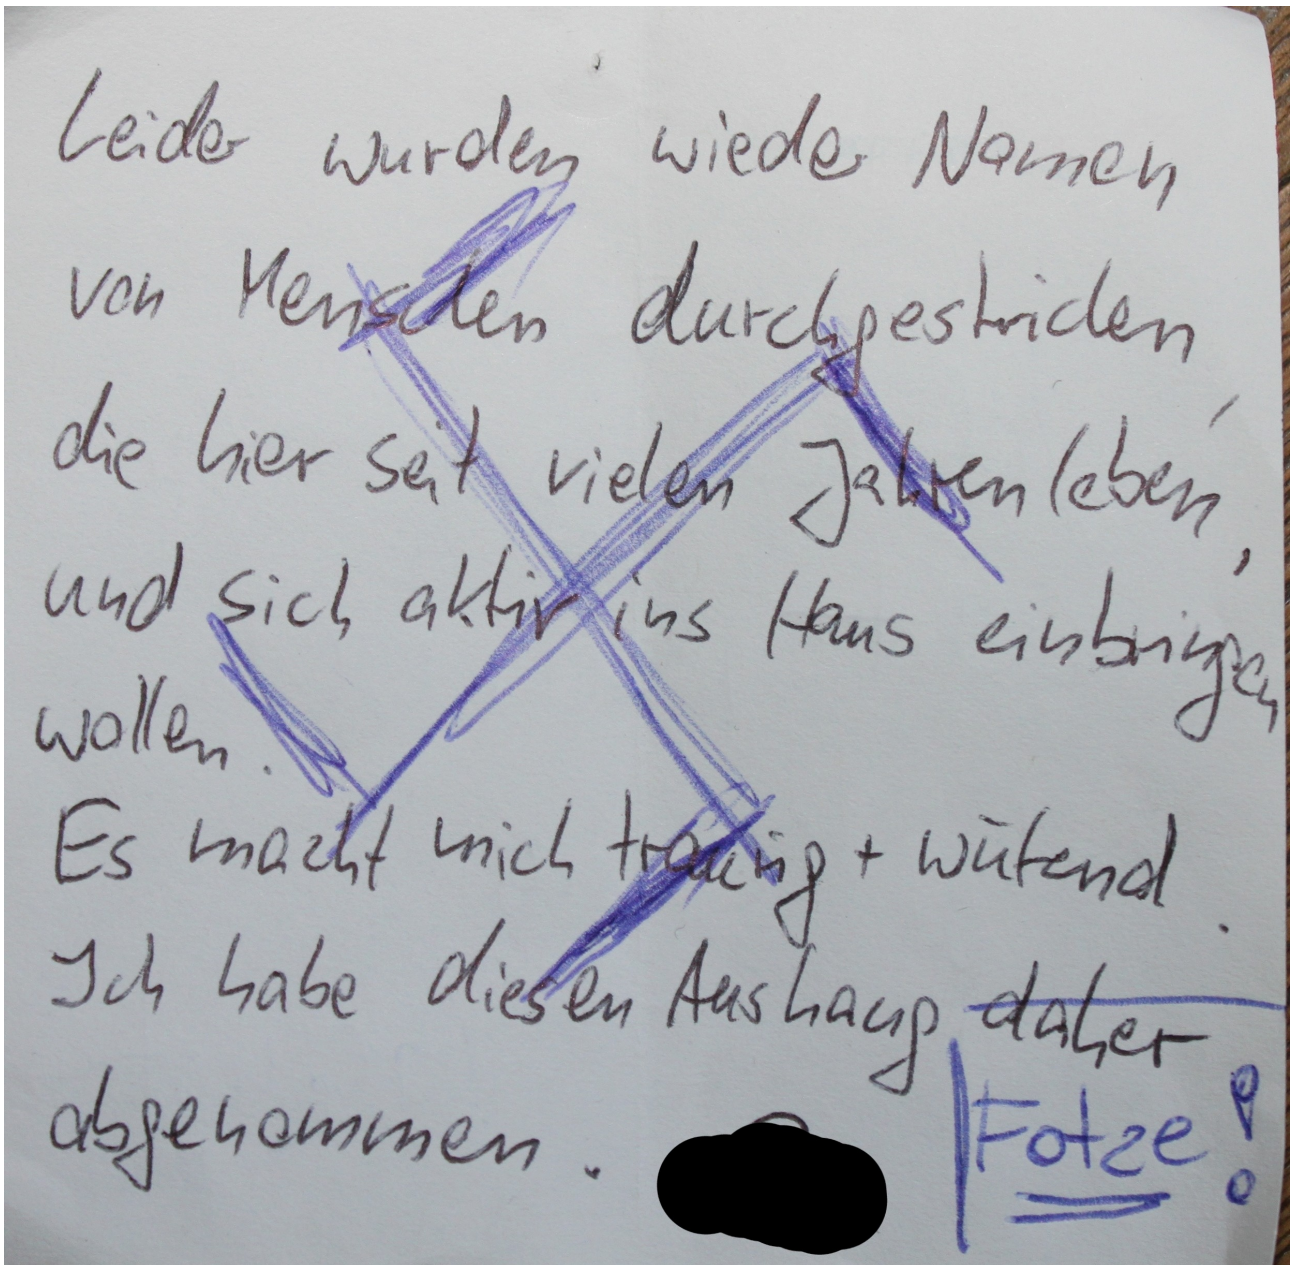 Leider wurden wieder Namen
von Menschen durchgestrichen,
die hier seit vielen Jahren leben,
und sich aktiv ins Haus einbringen
wollen.
Es macht mich traurig + wütend.
Ich habe diesen Aushang daher
abgenommen.
Fotze!